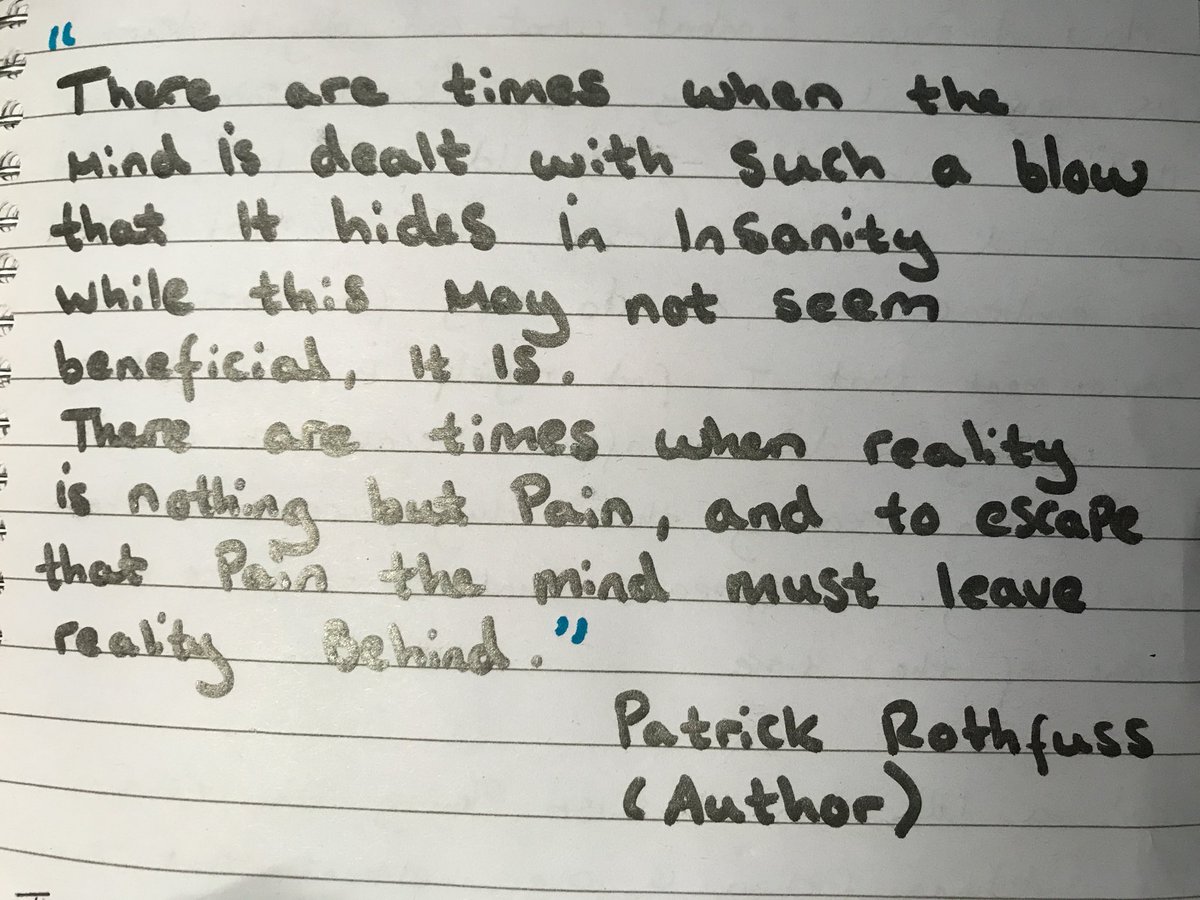 “
There are times when the
Mind is dealt with such a blow
that It hides in Insanity
while this May not seem
beneficial, It Is.
There are times when reality
is nothing but Pain, and to escape
that Pain the mind must leave
reality Behind.”
Patrick Rothfuss
(Author)